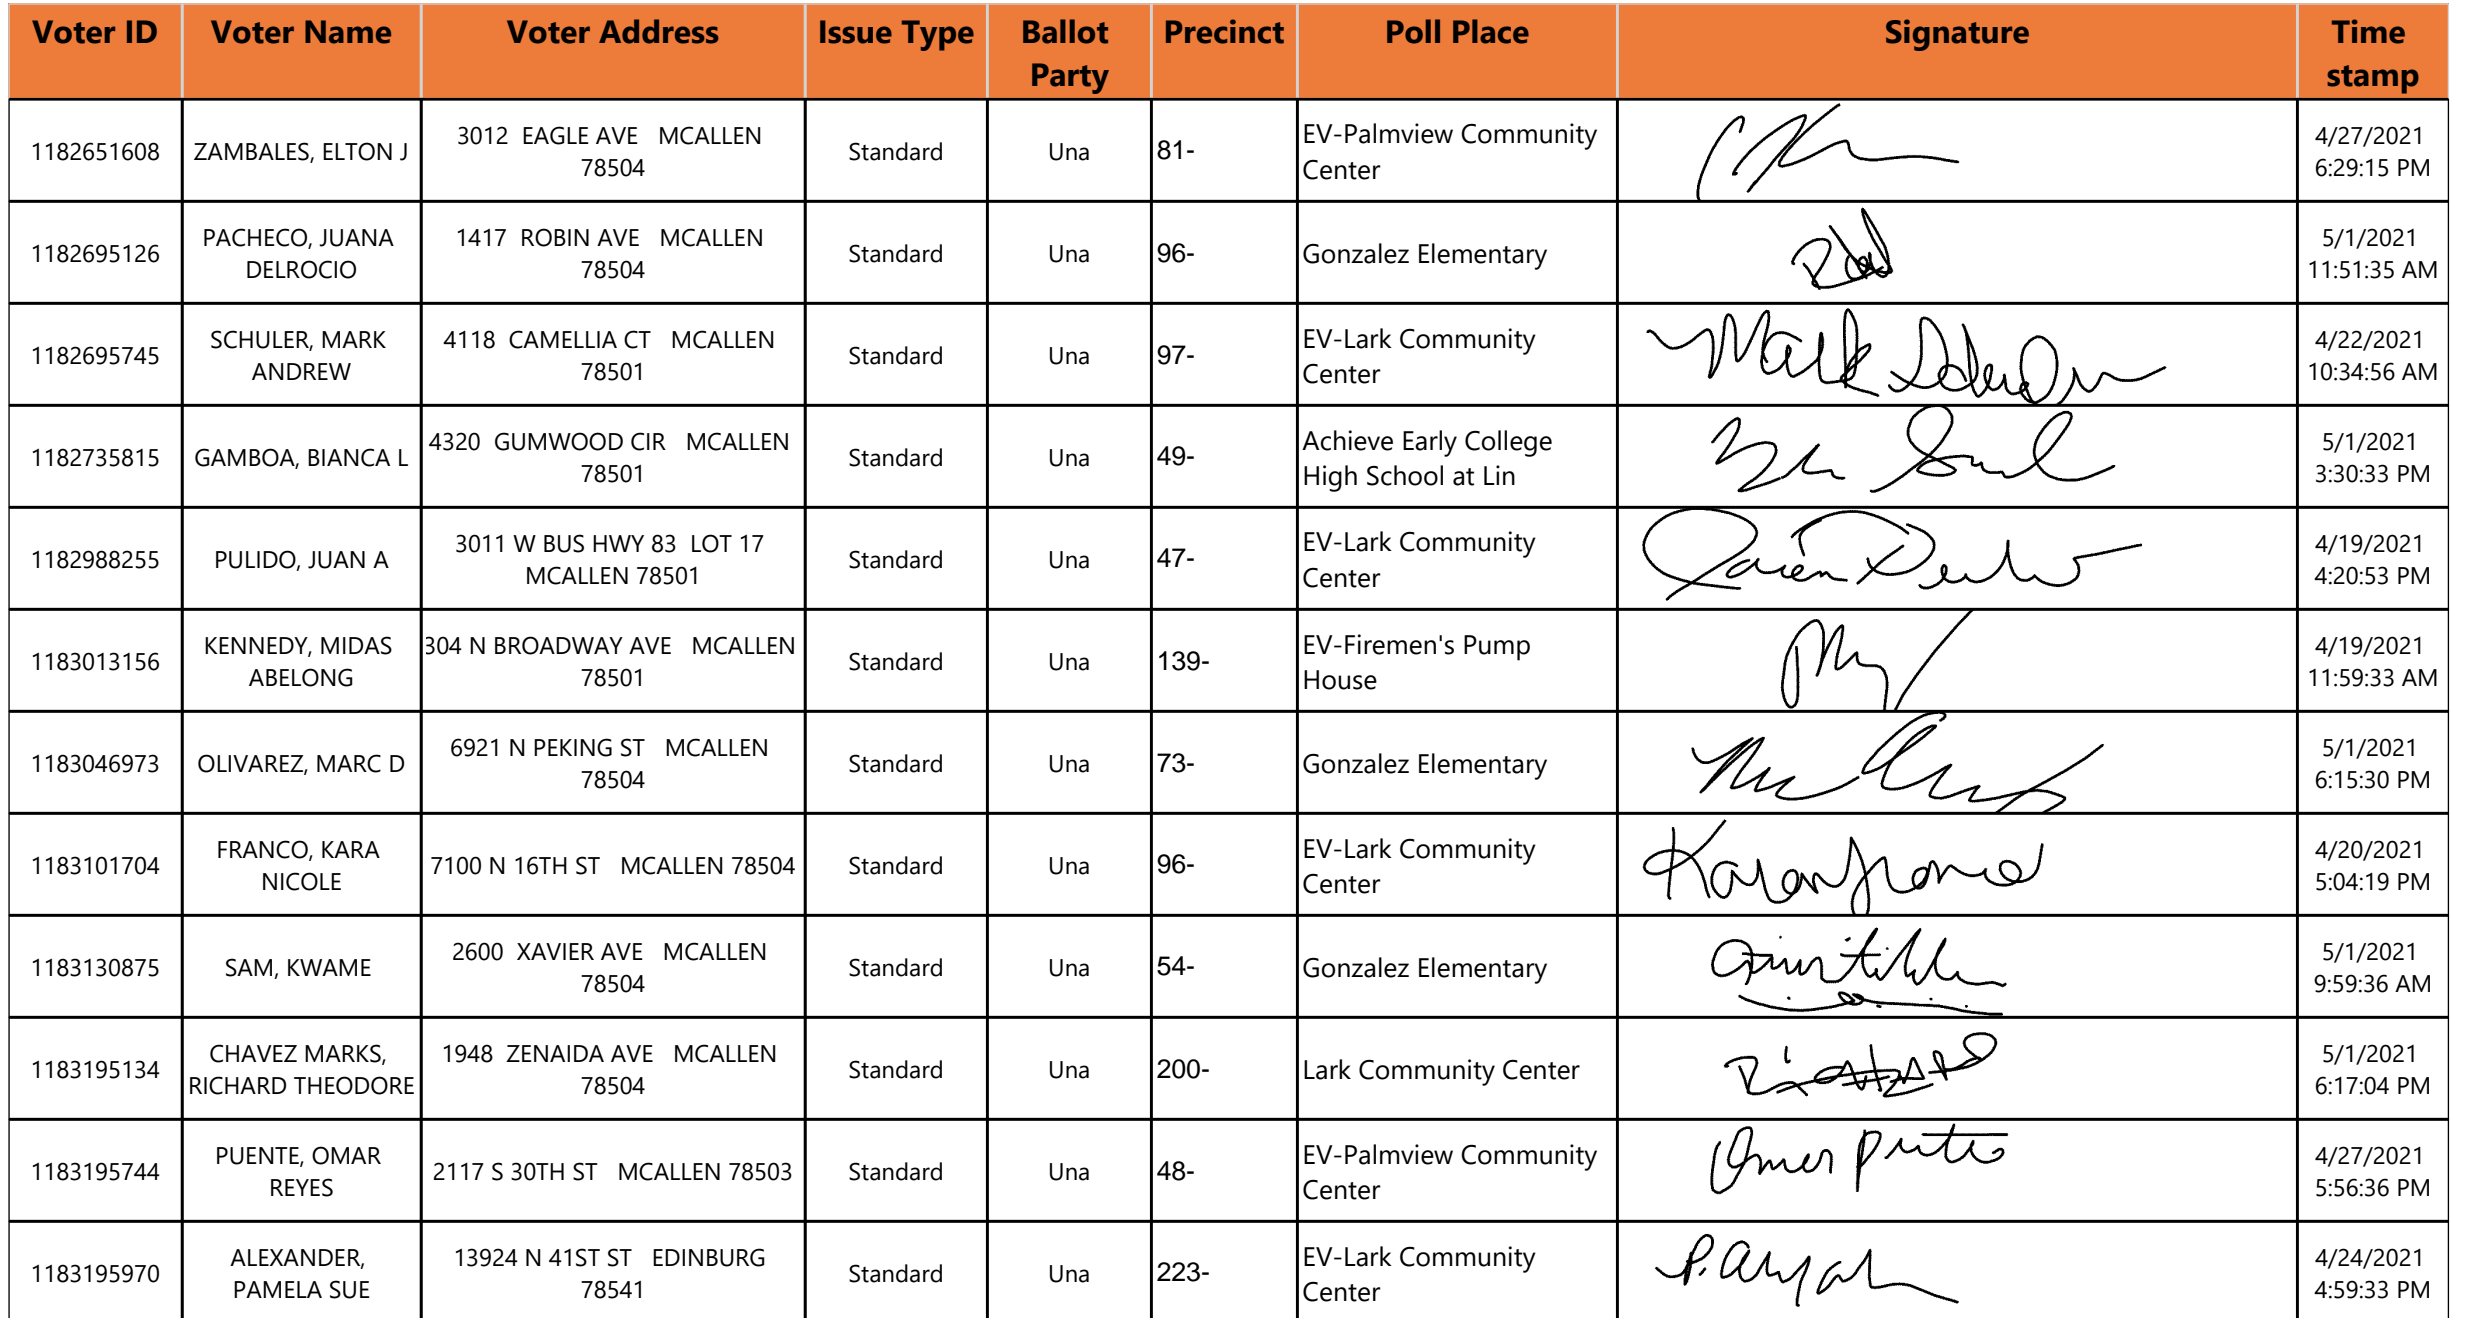 Voter ID Voter Name Voter Address Issue Type Ballot Party Precinct Poll Place Signature Time stamp
1182651608 ZAMBALES, ELTON J 3012 EAGLE AVE MCALLEN 78504 Standard Una 81- EV-Palmview Community Center 4/27/2021 6:29:15 PM
1182695126 PACHECO, JUANA DELROCIO 1417 ROBIN AVE MCALLEN 78504 Standard Una 96- Gonzalez Elementary 5/1/2021 11:51:35 AM
1182695745 SCHULER, MARK ANDREW 4118 CAMELLIA CT MCALLEN 78501 Standard Una 97- EV-Lark Community Center Mark 4/22/2021 10:34:56 AM
1182735815 GAMBOA, BIANCA L 4320 GUMWOOD CIR MCALLEN 78501 Standard Una 49- Achieve Early College High School at Lin 5/1/2021 3:30:33 PM
1182988255 PULIDO, JUAN A 3011 W BUS HWY 83 LOT 17 MCALLEN 78501 Standard Una 47- EV-Lark Community Center 4/19/2021 4:20:53 PM
1183013156 KENNEDY, MIDAS ABELONG 304 N BROADWAY AVE MCALLEN 78501 Standard Una 139- EV-Firemen's Pump House 4/19/2021 11:59:33 AM
1183046973 OLIVAREZ, MARC D 6921 N PEKING ST MCALLEN 78504 Standard Una 73- Gonzalez Elementary 5/1/2021 6:15:30 PM
1183101704 FRANCO, KARA NICOLE 7100 N 16TH ST MCALLEN 78504 Standard Una 96- EV-Lark Community Center 4/20/2021 5:04:19 PM
1183130875 SAM, KWAME 2600 XAVIER AVE MCALLEN 78504 Standard Una 54- Gonzalez Elementary 5/1/2021 9:59:36 AM
1183195134 CHAVEZ MARKS, RICHARD THEODORE 1948 ZENAIDA AVE MCALLEN 78504 Standard Una 200- Lark Community Center 5/1/2021 6:17:04 PM
1183195744 PUENTE, OMAR REYES 2117 S 30TH ST MCALLEN 78503 Standard Una 48- EV-Palmview Community Center 4/27/2021 5:56:36 PM
1183195970 ALEXANDER, PAMELA SUE 13924 N 41ST ST EDINBURG 78541 Standard Una 223- EV-Lark Community Center 4/24/2021 4:59:33 PM